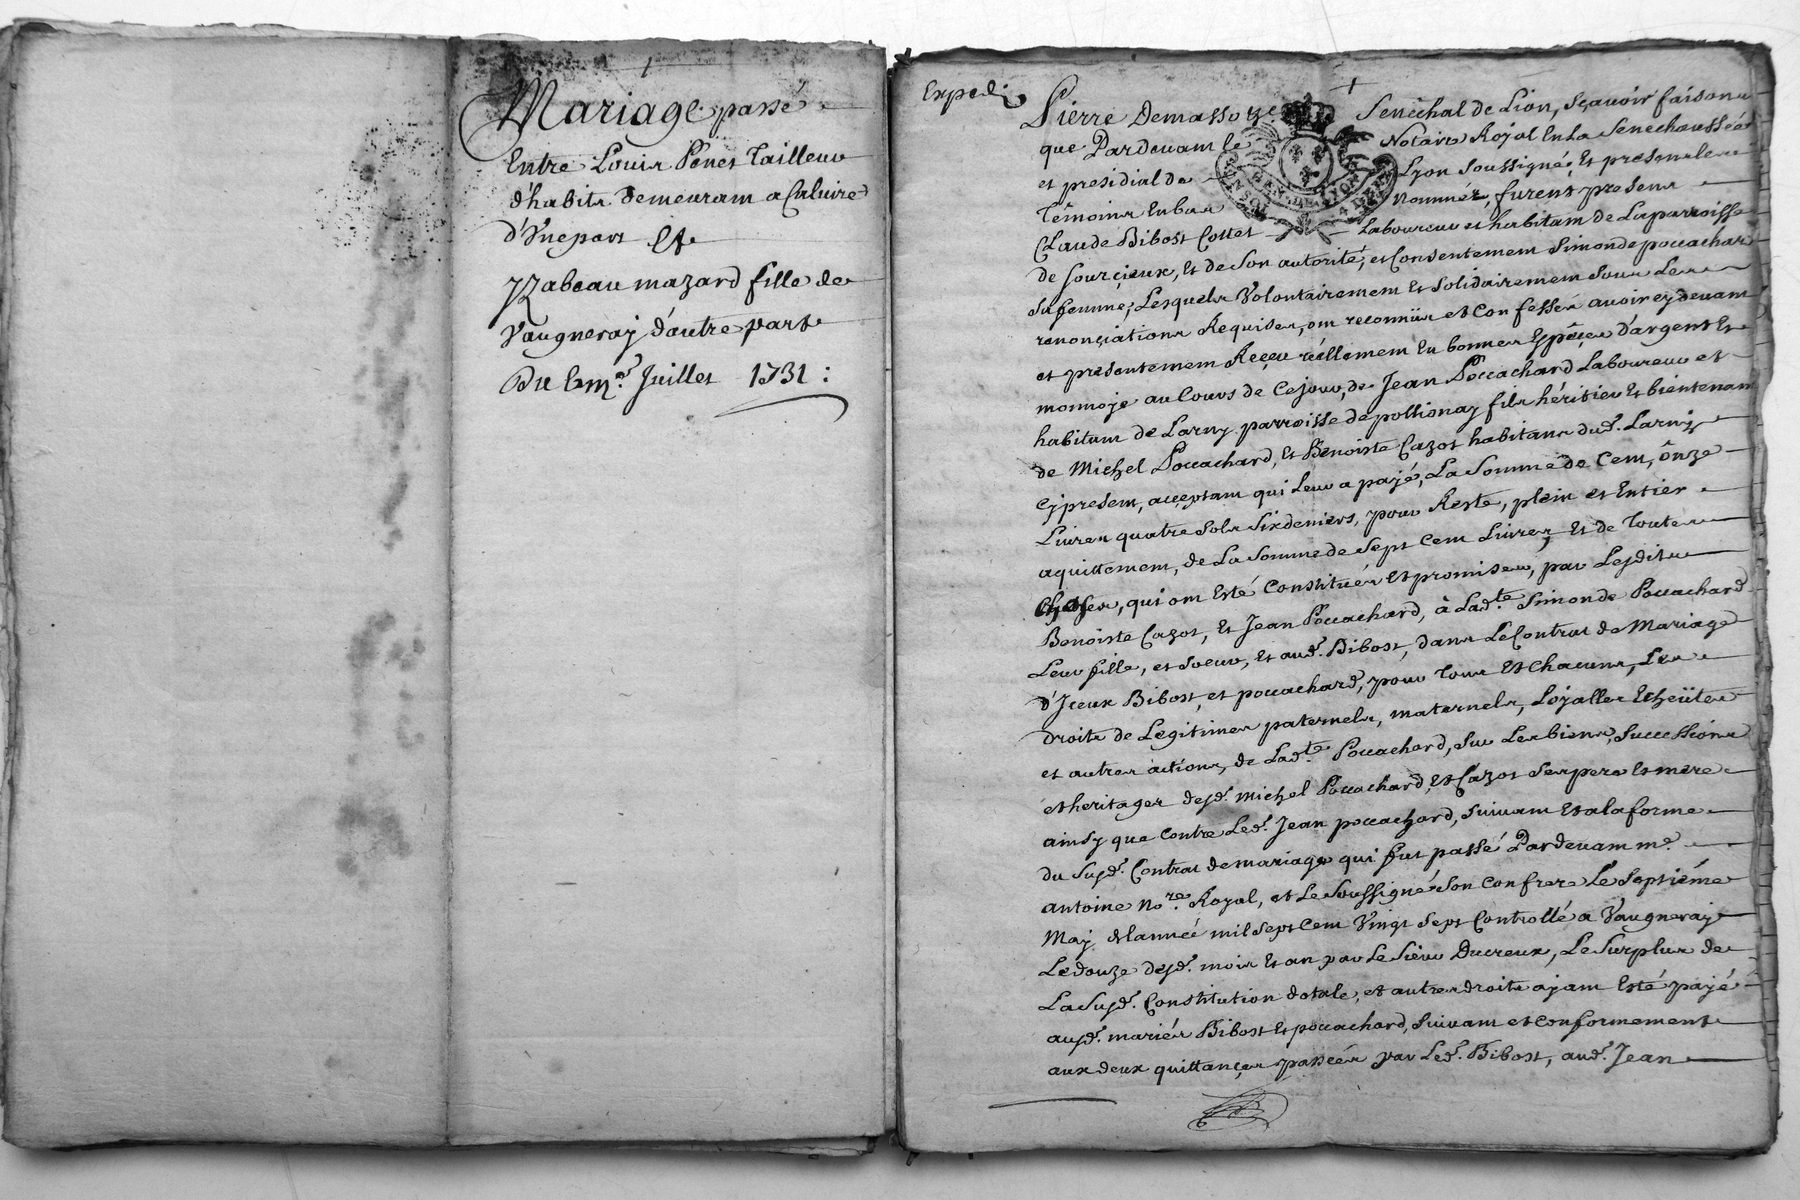 Mariage passé
Entre Louis Penet Tailleur
d'habits demeurant a Caluire
d'Unepart Et
Yzabeau mazard fille de
Vaugneray d'autre part
Du Juillet 1731 :
Expedié
Pierre Demassoize Senéchal de Lion, Sçavoir faisons
que Pardevant le Notaire Royal En La Senechaussée
et presidial de Lyon Soussigné, Et presence des
Témoins En bas Nommés, furent presens
Claude Bibost Collet Laboureur et habitant de La parroisse
de Sourçieux, Et de Son autorité, et Consentement Simonde pocachard
Sa femme, Lesquels Volontairement Et Solidairement Sous Les
renonçiations Requises, ont reconnu et Confessé avoir cy devant
et presentement Reçeu réellement En bonnes Espèçes D'argent Et
monnoye au Cours de Cejour, de Jean Pocachard Laboureur et
habitant de Larny parroisse de pollionay fils héritier Et bientenant
de Michel Pocachard, Et Benoiste Cazot habitans dud. Larny
Cy present, acceptant qui Leur a payé, La Somme de Cent, ônze
Livres quatre Sols Sixdeniers, pour Reste, plein et Entier
aquittement, de La Somme de Sept Cent Livres, Et de Toutes
Choses, qui ont Esté Constituées Et promises, par Lesdits
Benoiste Cazot, Et Jean Pocachard, à Lad.te Simonde Pocachard
Leur fille, et Soeur, Et aud. Bibost, dans Le Contrat de Mariage
d'Iceux Bibost, et pocachard, pour Tous Et Chacuns, Les
droits de Légitimes paternels, maternels, Loyalles Echeütes
et autres actions, de Lad.te Pocachard, Sur Les biens, Successions
et heritages desd. Michel Pocachard, Et Cazot Ses pere Et mere
ainsy que Contre Led. Jean pocachard, Suivant Et a la forme
du Susd. Contrat de mariage qui fut passé Pardevant me.
antoine No.re Royal, et Le Soussigné Son Confrere Le Septiéme
May de L'année mil Sept Cent Vingt Sept Controllé a Vaugneray
Le douze desd. mois Et an par Le Sieur Ducreux, Le Surplus de
La Susd. Constitution dotale, et autres droits ayant Esté payé
ausd. mariés Bibost Et pocachard, Suivant et Conformement
aux deux quittançes passées par Led. Bibost, aud. Jean